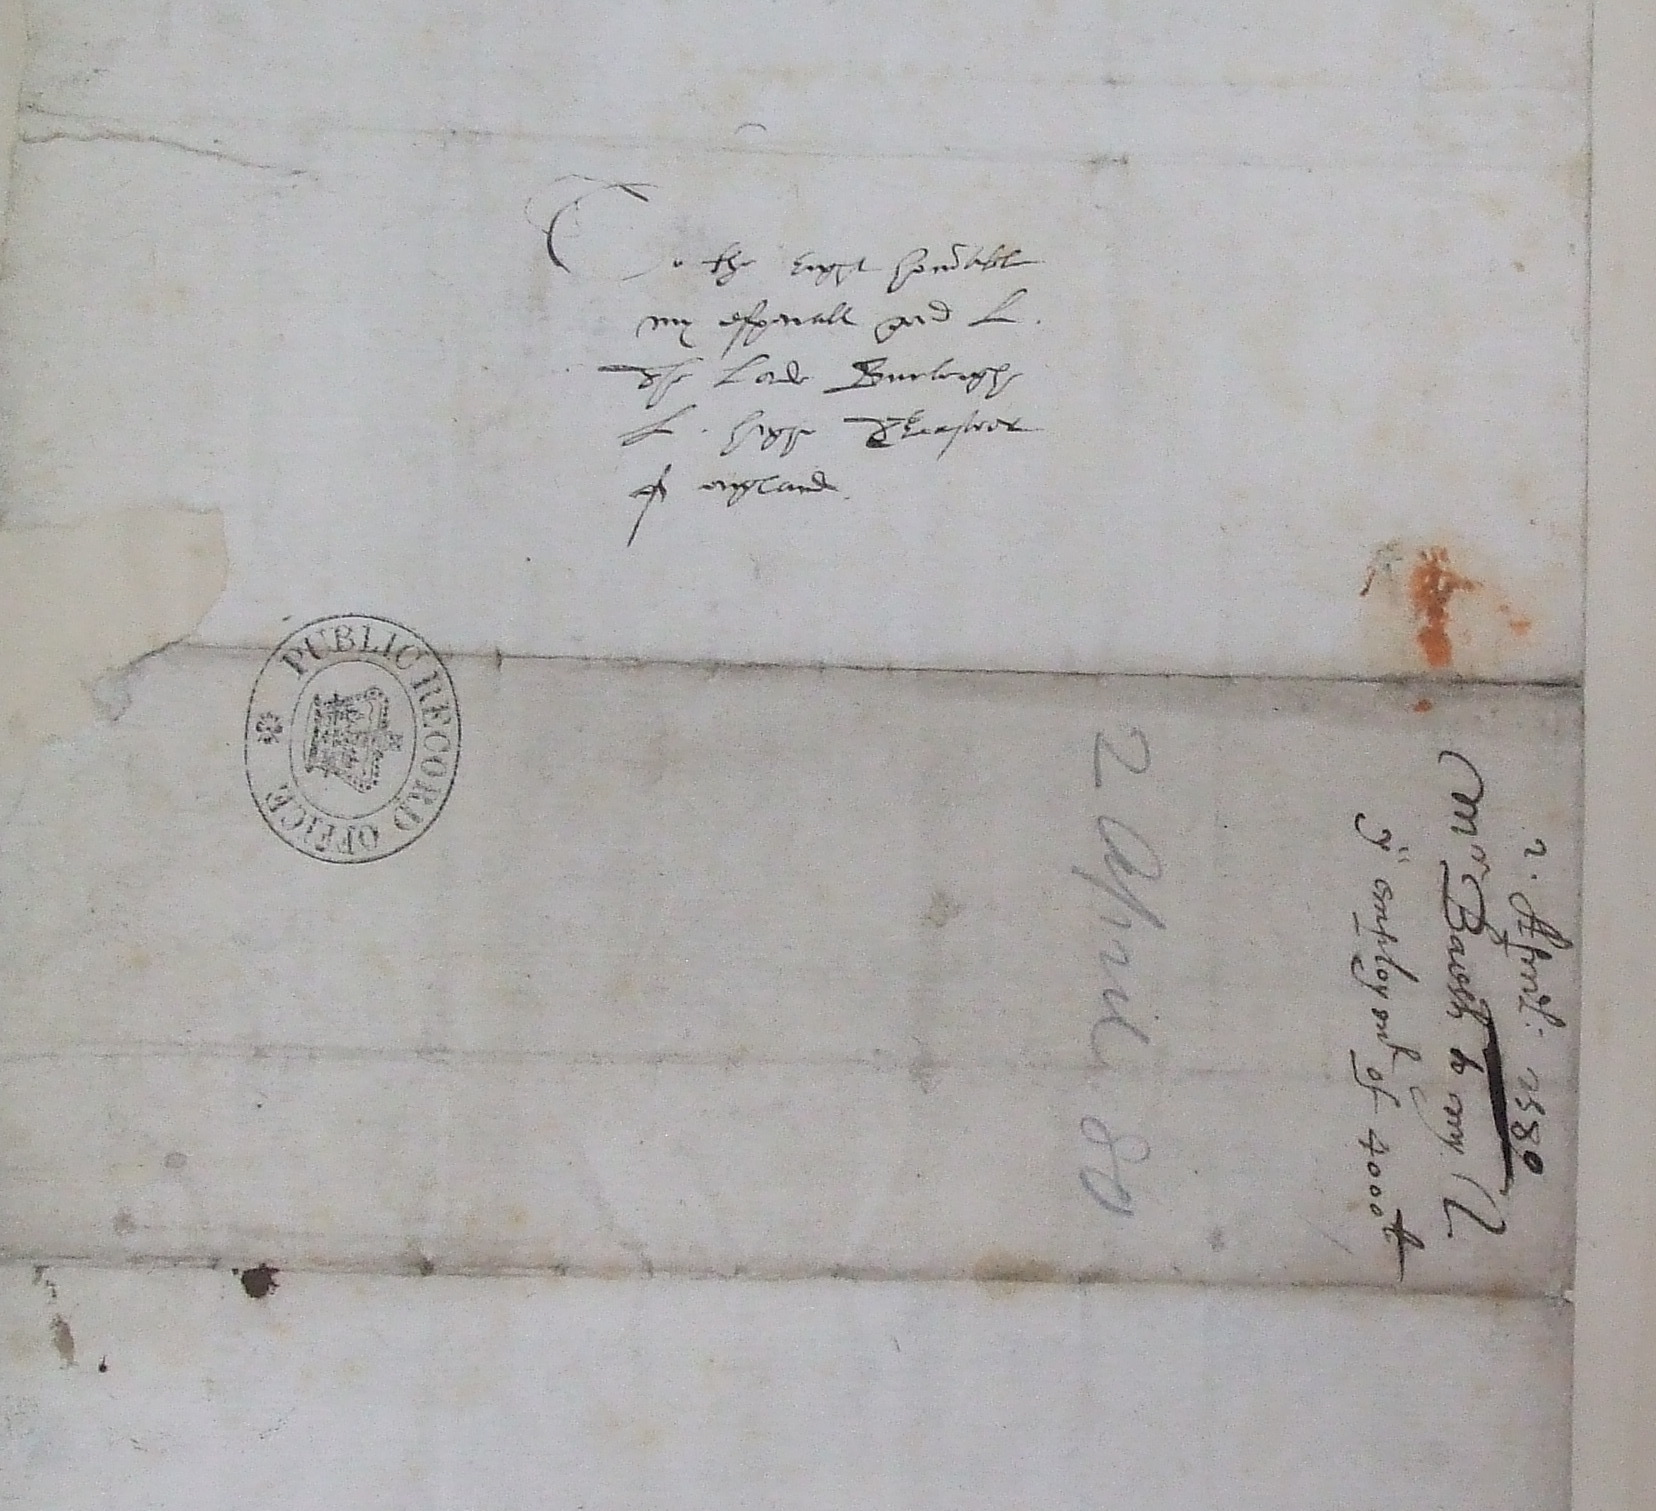 To the right honorabll
my especiall good L.
The Lorde Burleighe
L. highe Threasoror
of england.
PUBLIC RECORD OFFICE
2 April 80
2. April: 1580
Mr Bawdh to my L
ye employmt of 4000li